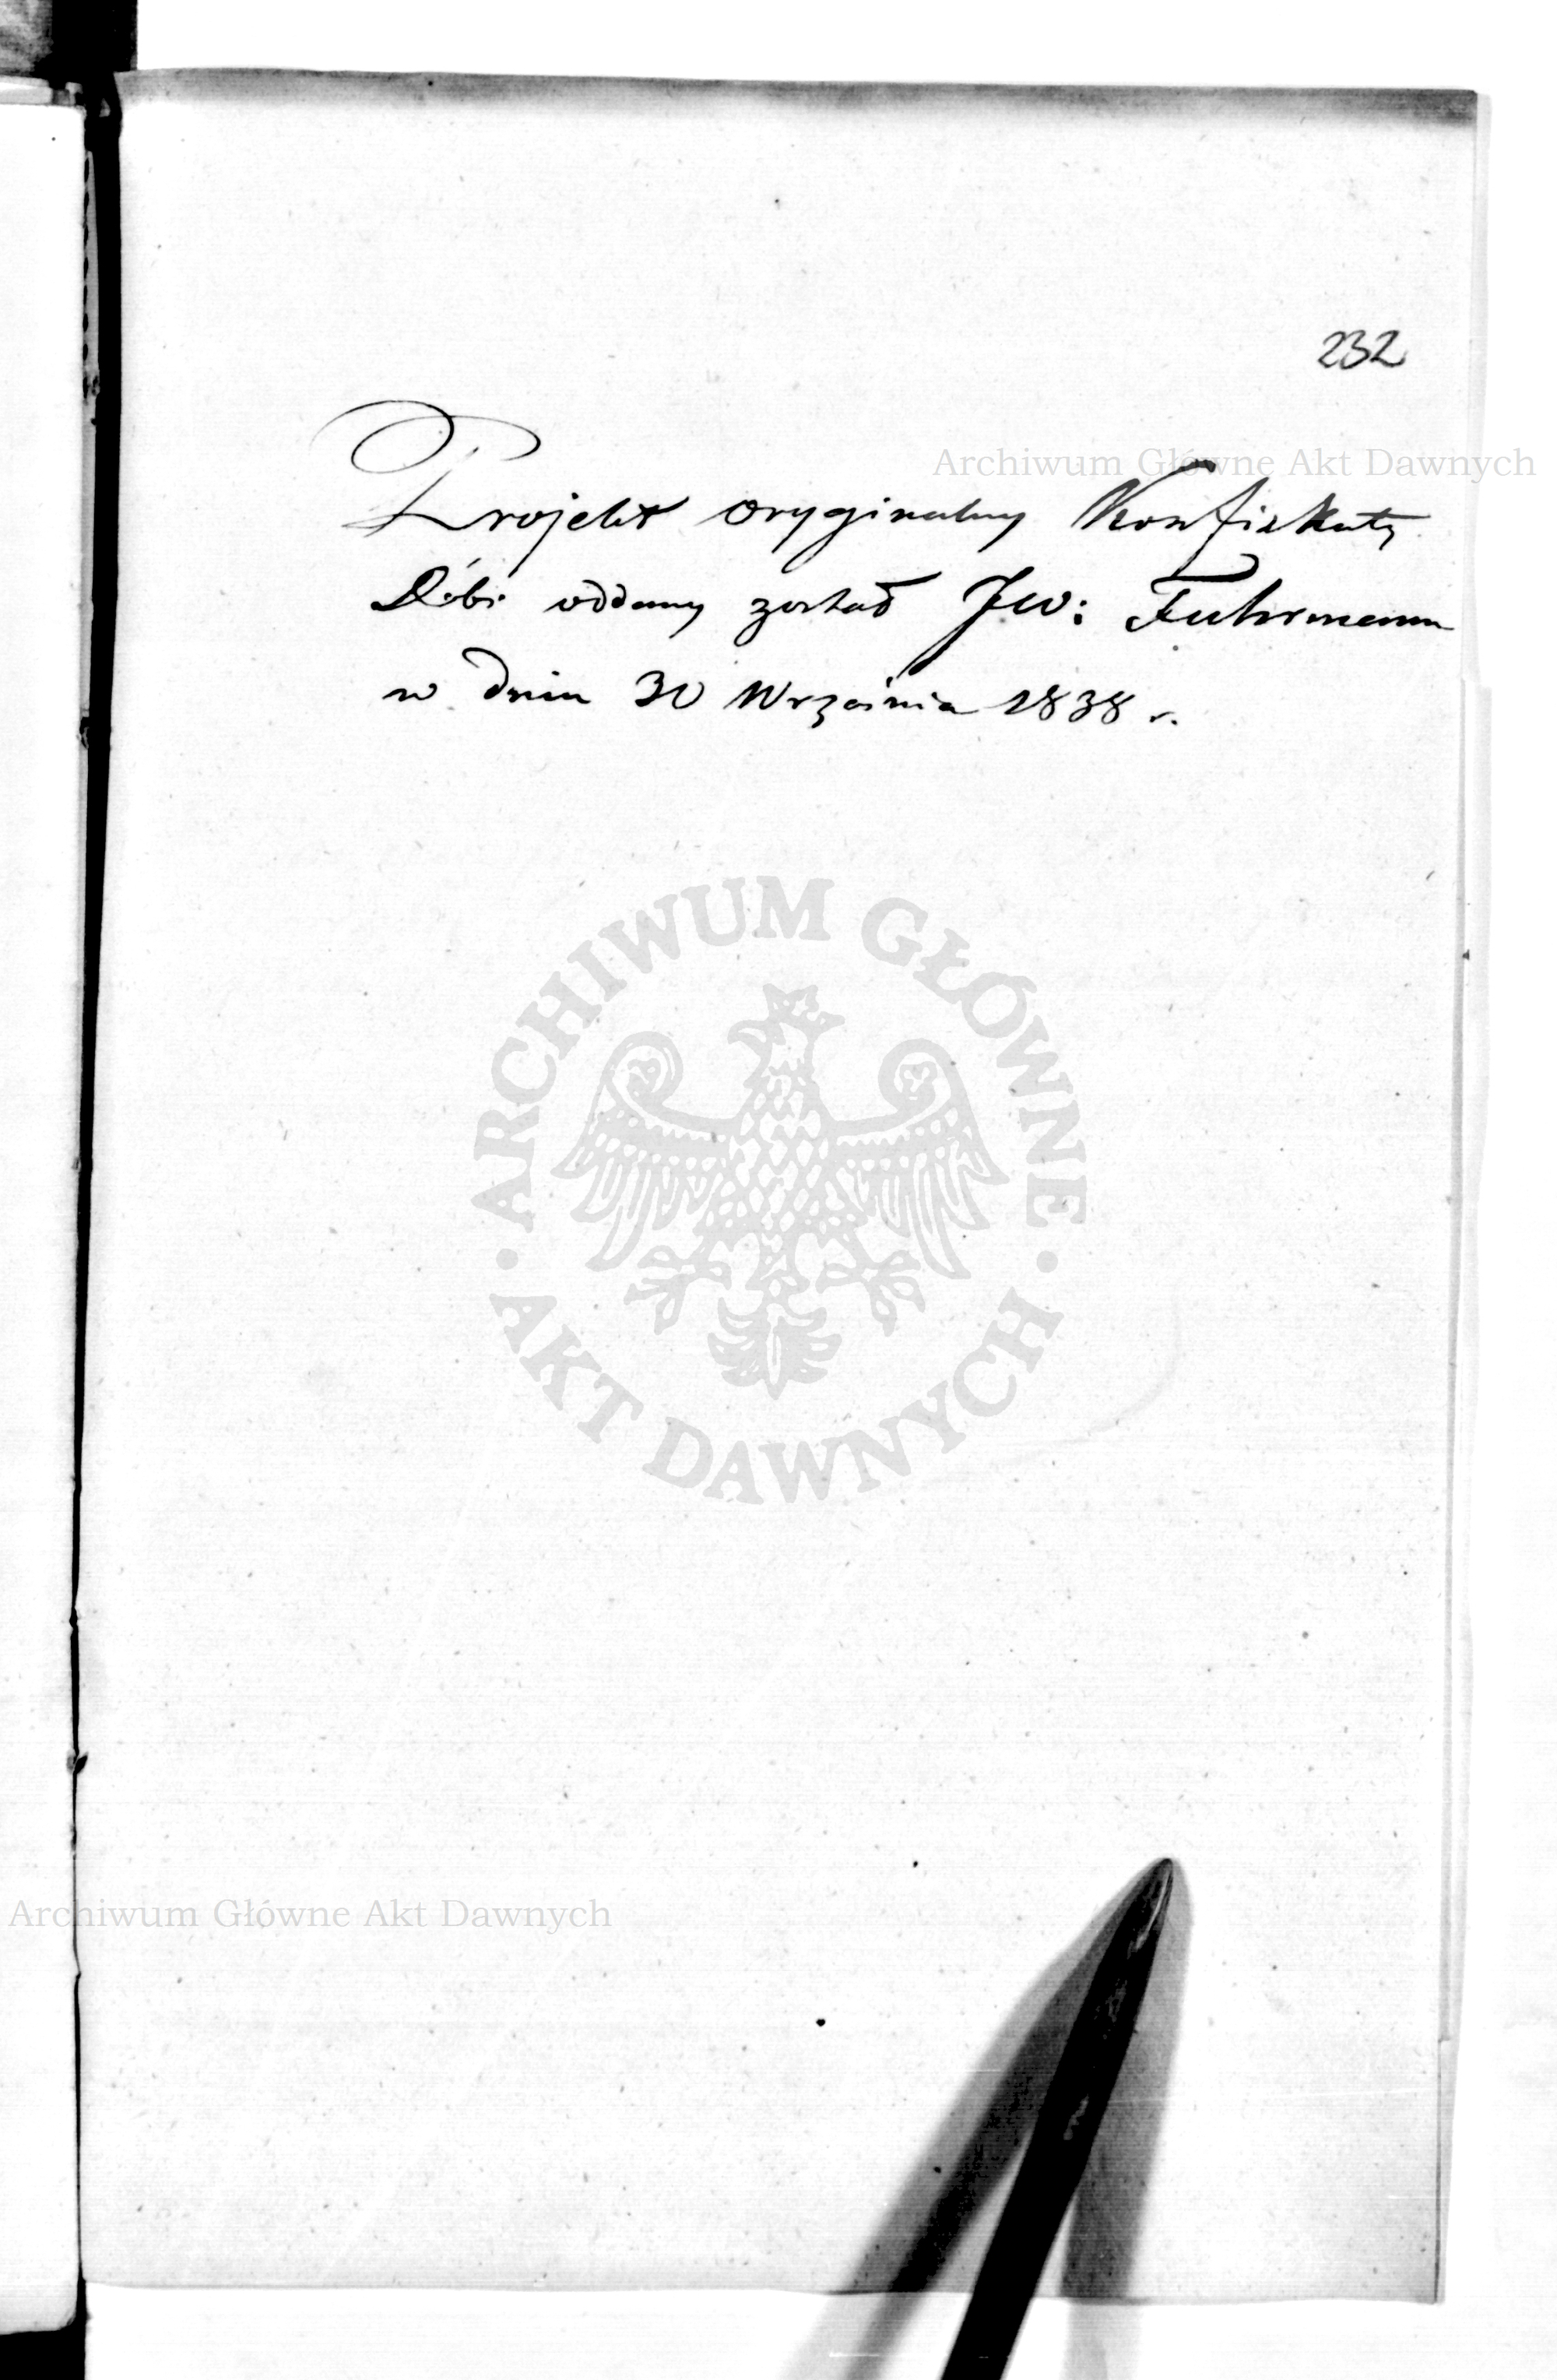 232
Archiwum Główne Akt Dawnych
Projekt oryginalny Konfiskaty
Dóbr oddany został JW: Fuhrmann
w dniu 30 Września 1838 r.
ARCHIWUM GŁÓWNE
AKT DAWNYCH
Archiwum Główne Akt Dawnych